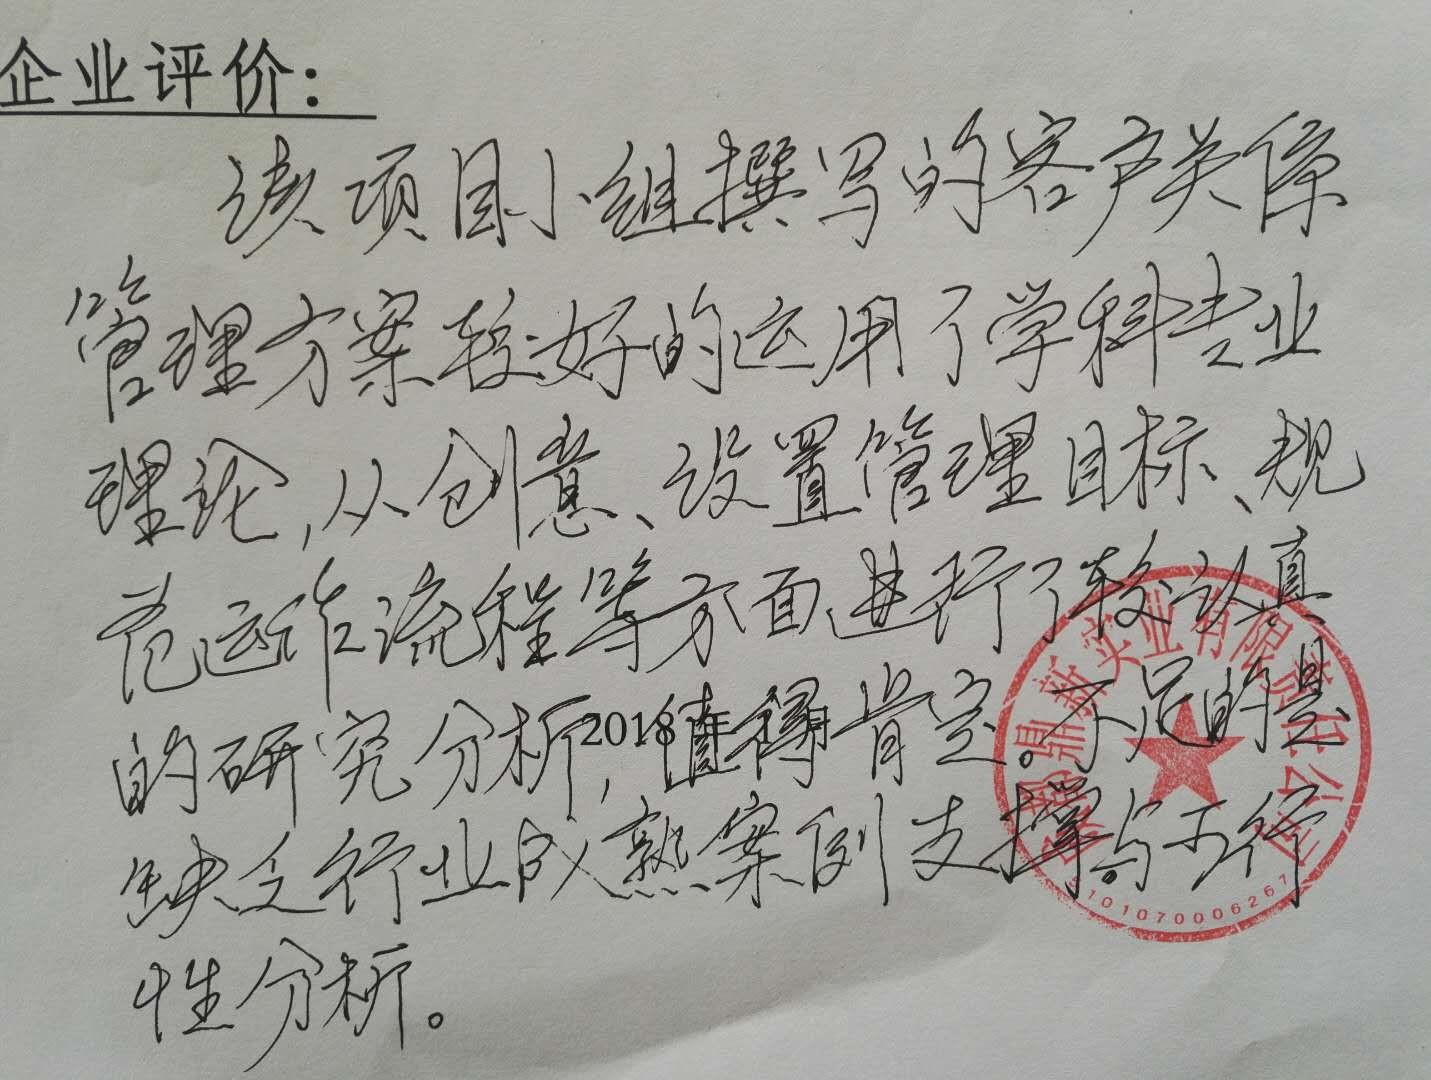 企业评价:
该项目小组撰写的客户关系
管理方案较好的运用了学科专业
理论,从创意、设置管理目标、规
范运作流程等方面进行了较认真
的研究分析,值得肯定。不足的是
2018 年 1 月
缺乏行业成熟案例支撑与可行
性分析。
鼎新实业有限责任公司
5101070006267